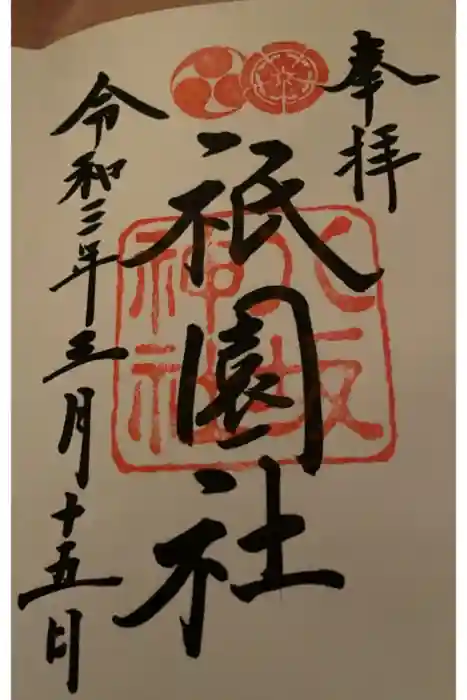 奉拝
八坂
神社
祇園社
令和三年三月十五日